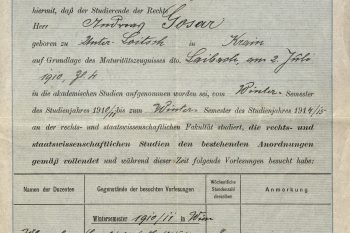 hiermit, daß der Studierende der Rechte
Herr Andreas Gosar
geboren zu Unter-Loitsch in Krain
auf Grundlage des Maturitätszeugnisses dto. Laibach, am 2. Juli
1910, Z 4
in die akademischen Studien aufgenommen worden sei, vom Winter- Semester
des Studienjahres 1910/11 bis zum Winter- Semester des Studienjahres 1914/15
an der rechts- und staatswissenschaftlichen Fakultät studiert, die rechts- und
staatswissenschaftlichen Studien den bestehenden Anordnungen
gemäß vollendet und während dieser Zeit folgende Vorlesungen besucht habe:
Namen der Dozenten
Gegenstände der besuchten Vorlesungen
Wöchentliche Stundenzahl derselben
Anmerkung
Wintersemester 1910/11 in Wien